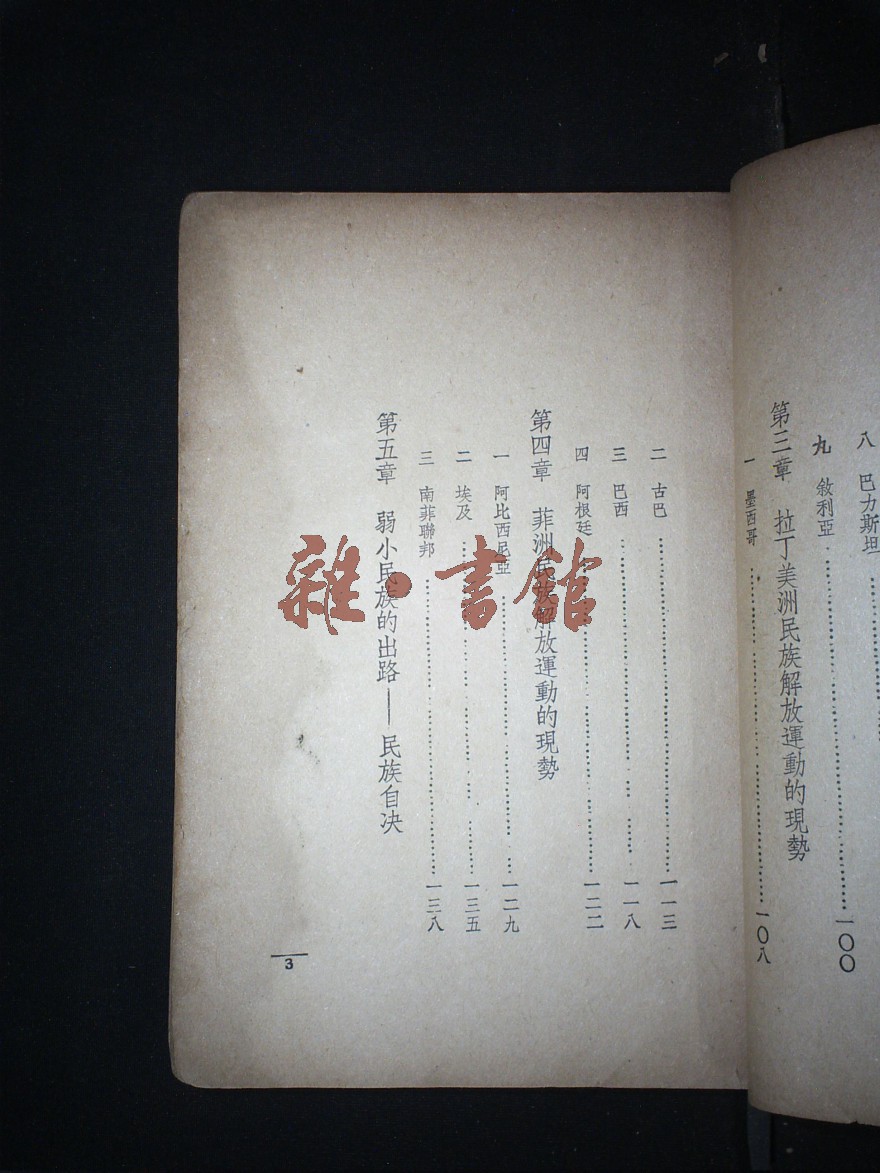 八 巴力斯坦
九 敘利亞 一〇〇
第三章 拉丁美洲民族解放運動的現勢
一 墨西哥 一〇八
二 古巴 一一三
三 巴西 一一八
四 阿根廷 一二二
第四章 菲洲民族解放運動的現勢
一 阿比西尼亞 一二九
二 埃及 一三五
三 南菲聯邦 一三八
第五章 弱小民族的出路——民族自决
3
雜·書館